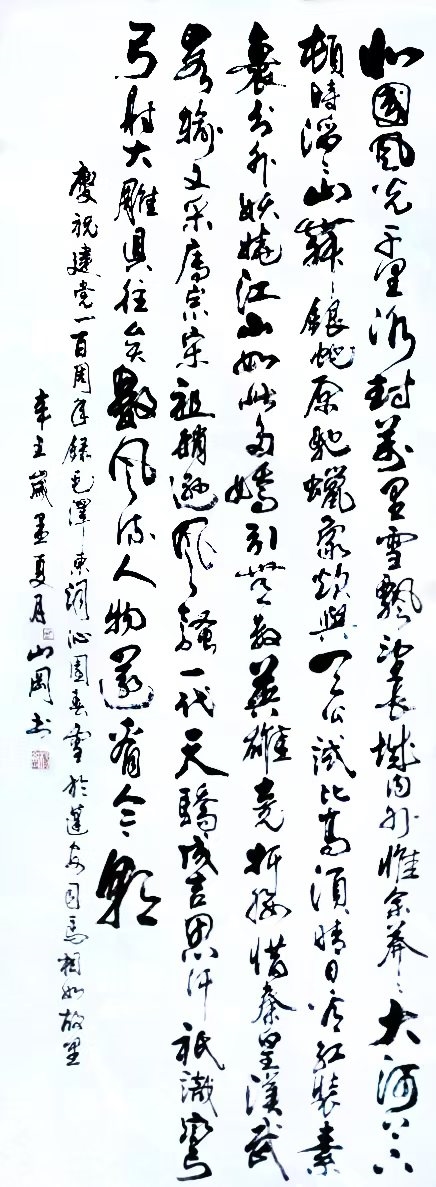 北國風光千里冰封萬里雪飄望長城内外惟余莽〻大河上下
頓時滔〻山舞銀蛇原馳蠟象欲與天公試比高須晴日看紅裝素
裹分外妖嬈江山如此多嬌引無數英雄竞折腰惜秦皇漢武
略輸文采唐宗宋祖稍遜風騷一代天驕成吉思汗祗識彎
弓射大雕俱往矣數風流人物還看今朝
慶祝建党一百周年錄毛澤東詞沁園春雪於蓬安司馬相如故里
辛丑歲孟夏月山岡书